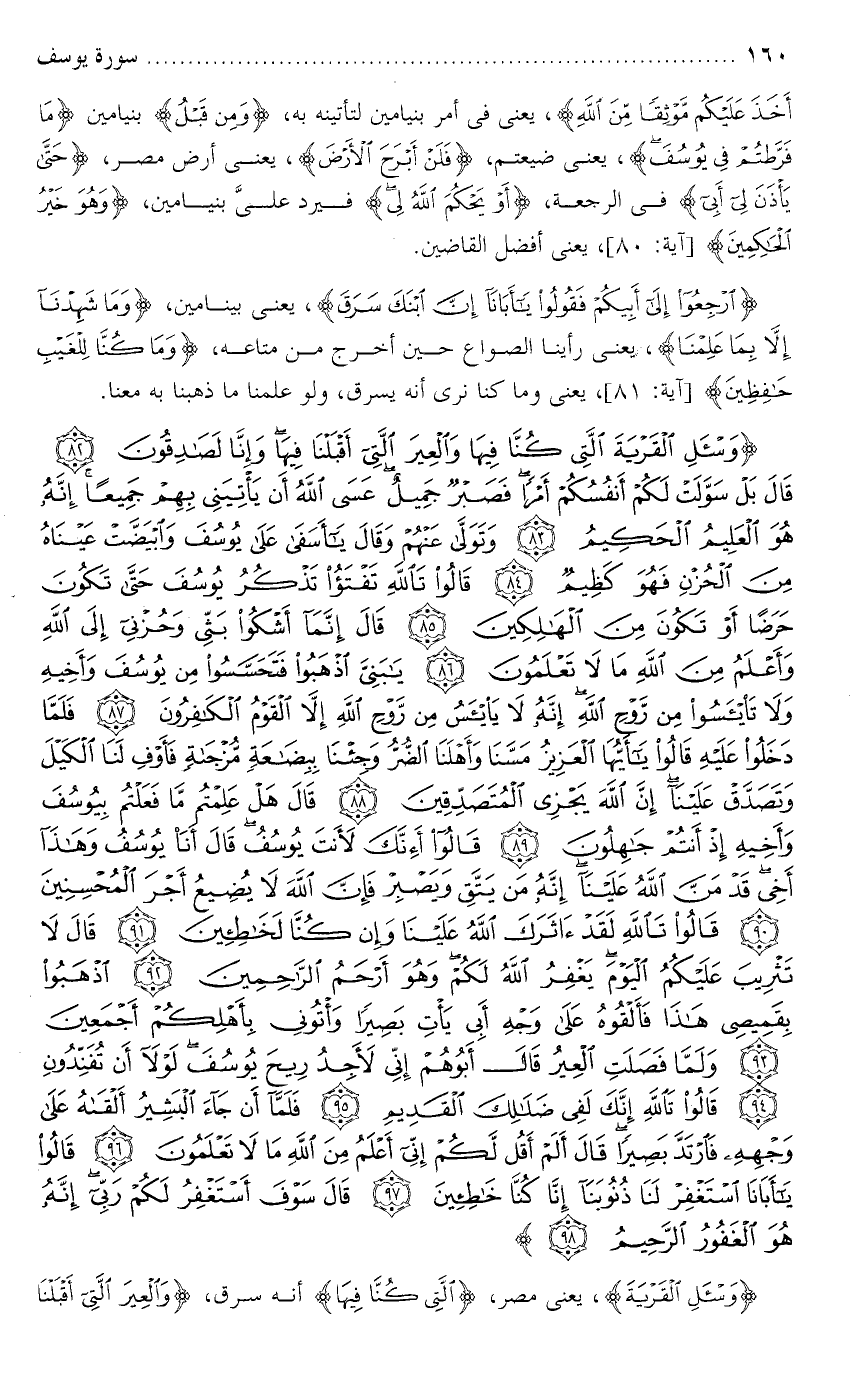 ١٦٠ ........................................ سورة يوسف
أَخَذَ عَلَيْكُم مَّوْثِقًا مِّنَ ٱللَّهِ﴾، يعنى فى أمر بنيامين لتأتينه به، ﴿وَمِن قَبْلُ﴾ بنيامين ﴿مَا
فَرَّطتُمْ فِى يُوسُفَ ۖ﴾، يعنى ضيعتم، ﴿فَلَنْ أَبْرَحَ ٱلْأَرْضَ﴾، يعنى أرض مصر، ﴿حَتَّىٰ
يَأْذَنَ لِىٓ أَبِىٓ﴾ فى الرجعة، ﴿أَوْ يَحْكُمَ ٱللَّهُ لِى ۖ﴾ فيرد علىَّ بنيامين، ﴿وَهُوَ خَيْرُ
ٱلْحَٰكِمِينَ﴾ [آية: ٨٠]، يعنى أفضل القاضين.
﴿ٱرْجِعُوٓا۟ إِلَىٰٓ أَبِيكُمْ فَقُولُوا۟ يَٰٓأَبَانَآ إِنَّ ٱبْنَكَ سَرَقَ﴾، يعنى بينامين، ﴿وَمَا شَهِدْنَآ
إِلَّا بِمَا عَلِمْنَا﴾، يعنى رأينا الصواع حين أخرج من متاعه، ﴿وَمَا كُنَّا لِلْغَيْبِ
حَٰفِظِينَ﴾ [آية: ٨١]، يعنى وما كنا نرى أنه يسرق، ولو علمنا ما ذهبنا به معنا.
﴿وَسْـَٔلِ ٱلْقَرْيَةَ ٱلَّتِى كُنَّا فِيهَا وَٱلْعِيرَ ٱلَّتِىٓ أَقْبَلْنَا فِيهَا ۖ وَإِنَّا لَصَٰدِقُونَ ٨٢
قَالَ بَلْ سَوَّلَتْ لَكُمْ أَنفُسُكُمْ أَمْرًا ۖ فَصَبْرٌ جَمِيلٌ ۖ عَسَى ٱللَّهُ أَن يَأْتِيَنِى بِهِمْ جَمِيعًا ۚ إِنَّهُۥ
هُوَ ٱلْعَلِيمُ ٱلْحَكِيمُ ٨٣ وَتَوَلَّىٰ عَنْهُمْ وَقَالَ يَٰٓأَسَفَىٰ عَلَىٰ يُوسُفَ وَٱبْيَضَّتْ عَيْنَاهُ
مِنَ ٱلْحُزْنِ فَهُوَ كَظِيمٌ ٨٤ قَالُوا۟ تَٱللَّهِ تَفْتَؤُا۟ تَذْكُرُ يُوسُفَ حَتَّىٰ تَكُونَ
حَرَضًا أَوْ تَكُونَ مِنَ ٱلْهَٰلِكِينَ ٨٥ قَالَ إِنَّمَآ أَشْكُوا۟ بَثِّى وَحُزْنِىٓ إِلَى ٱللَّهِ
وَأَعْلَمُ مِنَ ٱللَّهِ مَا لَا تَعْلَمُونَ ٨٦ يَٰبَنِىَّ ٱذْهَبُوا۟ فَتَحَسَّسُوا۟ مِن يُوسُفَ وَأَخِيهِ
وَلَا تَا۟يْـَٔسُوا۟ مِن رَّوْحِ ٱللَّهِ ۖ إِنَّهُۥ لَا يَا۟يْـَٔسُ مِن رَّوْحِ ٱللَّهِ إِلَّا ٱلْقَوْمُ ٱلْكَٰفِرُونَ ٨٧ فَلَمَّا
دَخَلُوا۟ عَلَيْهِ قَالُوا۟ يَٰٓأَيُّهَا ٱلْعَزِيزُ مَسَّنَا وَأَهْلَنَا ٱلضُّرُّ وَجِئْنَا بِبِضَٰعَةٍ مُّزْجَىٰةٍ فَأَوْفِ لَنَا ٱلْكَيْلَ
وَتَصَدَّقْ عَلَيْنَآ ۖ إِنَّ ٱللَّهَ يَجْزِى ٱلْمُتَصَدِّقِينَ ٨٨ قَالَ هَلْ عَلِمْتُم مَّا فَعَلْتُم بِيُوسُفَ
وَأَخِيهِ إِذْ أَنتُمْ جَٰهِلُونَ ٨٩ قَالُوٓا۟ أَءِنَّكَ لَأَنتَ يُوسُفُ ۖ قَالَ أَنَا۠ يُوسُفُ وَهَٰذَآ
أَخِى ۖ قَدْ مَنَّ ٱللَّهُ عَلَيْنَآ ۖ إِنَّهُۥ مَن يَتَّقِ وَيَصْبِرْ فَإِنَّ ٱللَّهَ لَا يُضِيعُ أَجْرَ ٱلْمُحْسِنِينَ
٩٠ قَالُوا۟ تَٱللَّهِ لَقَدْ ءَاثَرَكَ ٱللَّهُ عَلَيْنَا وَإِن كُنَّا لَخَٰطِـِٔينَ ٩١ قَالَ لَا
تَثْرِيبَ عَلَيْكُمُ ٱلْيَوْمَ ۖ يَغْفِرُ ٱللَّهُ لَكُمْ ۖ وَهُوَ أَرْحَمُ ٱلرَّٰحِمِينَ ٩٢ ٱذْهَبُوا۟
بِقَمِيصِى هَٰذَا فَأَلْقُوهُ عَلَىٰ وَجْهِ أَبِى يَأْتِ بَصِيرًا وَأْتُونِى بِأَهْلِكُمْ أَجْمَعِينَ
٩٣ وَلَمَّا فَصَلَتِ ٱلْعِيرُ قَالَ أَبُوهُمْ إِنِّى لَأَجِدُ رِيحَ يُوسُفَ ۖ لَوْلَآ أَن تُفَنِّدُونِ
٩٤ قَالُوا۟ تَٱللَّهِ إِنَّكَ لَفِى ضَلَٰلِكَ ٱلْقَدِيمِ ٩٥ فَلَمَّآ أَن جَآءَ ٱلْبَشِيرُ أَلْقَىٰهُ عَلَىٰ
وَجْهِهِۦ فَٱرْتَدَّ بَصِيرًا ۖ قَالَ أَلَمْ أَقُل لَّكُمْ إِنِّىٓ أَعْلَمُ مِنَ ٱللَّهِ مَا لَا تَعْلَمُونَ ٩٦ قَالُوا۟
يَٰٓأَبَانَا ٱسْتَغْفِرْ لَنَا ذُنُوبَنَآ إِنَّا كُنَّا خَٰطِـِٔينَ ٩٧ قَالَ سَوْفَ أَسْتَغْفِرُ لَكُمْ رَبِّىٓ ۖ إِنَّهُۥ
هُوَ ٱلْغَفُورُ ٱلرَّحِيمُ ٩٨﴾
﴿وَسْـَٔلِ ٱلْقَرْيَةَ﴾، يعنى مصر، ﴿ٱلَّتِى كُنَّا فِيهَا﴾ أنه سرق، ﴿وَٱلْعِيرَ ٱلَّتِىٓ أَقْبَلْنَا